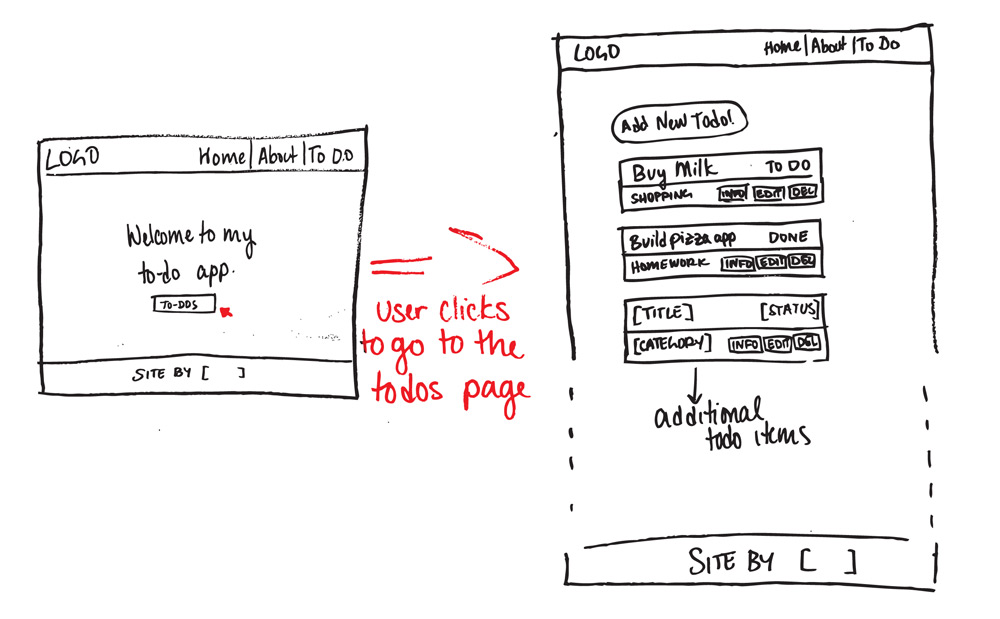 LOGO Home | About | To Do
Welcome to my
to-do app.
TO-DOS
SITE BY [ ]
user clicks
to go to the
todos page
LOGO Home | About | To Do
Add New Todo!
Buy Milk TO DO
SHOPPING INFO EDIT DEL
Build pizza app DONE
HOMEWORK INFO EDIT DEL
[TITLE] [STATUS]
[CATEGORY] INFO EDIT DEL
additional
todo items
SITE BY [ ]